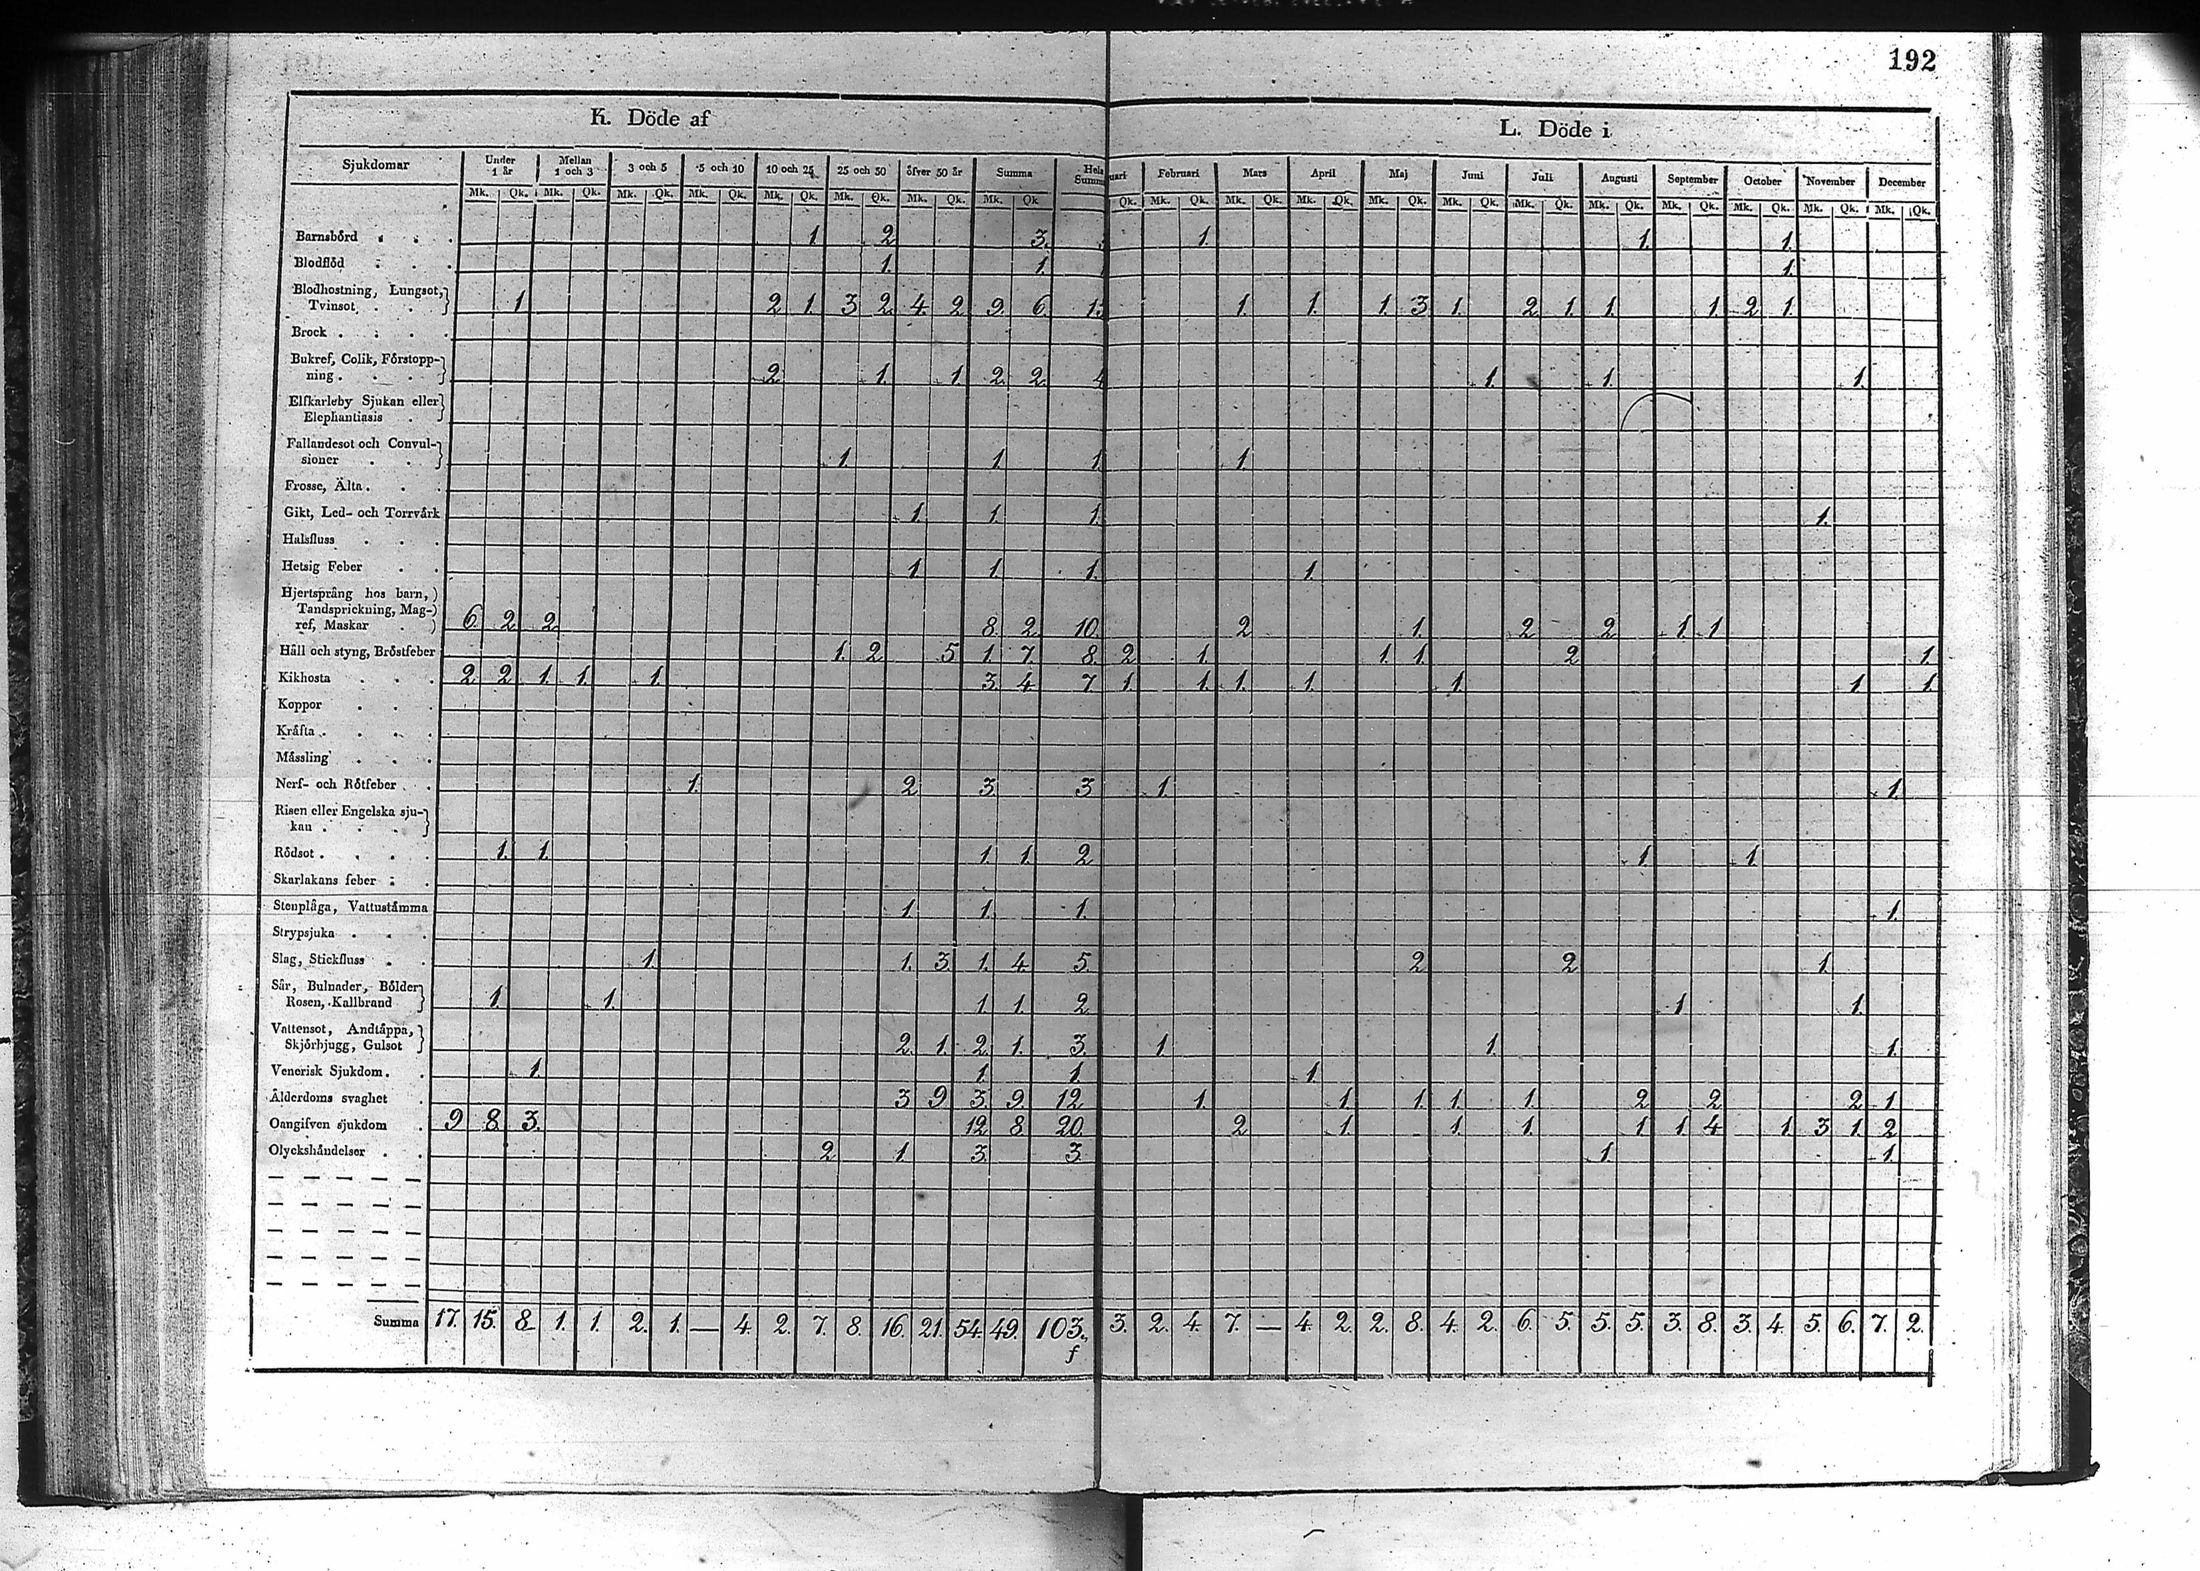 192
K. Döde af
L. Döde i
Sjukdomar Under 1 år Mellan 1 och 3 3 och 5 5 och 10 10 och 25 25 och 50 öfver 50 år Summa Hela Summa
uari Februari Mars April Maj Juni Juli Augusti September October November December
Mk. Qk. Mk. Qk. Mk. Qk. Mk. Qk. Mk. Qk. Mk. Qk. Mk. Qk. Mk. Qk
Qk. Mk. Qk. Mk. Qk. Mk. Qk. Mk. Qk. Mk. Qk. Mk. Qk. Mk. Qk. Mk. Qk. Mk. Qk. Mk. Qk. Mk. Qk.
Barnsbörd 1 2 3. 1. 1. 1.
Blodflöd 1. 1. 1.
Blodhostning, Lungsot,
Tvinsot 1 2 1. 3 2 4. 2 9. 6. 15 1. 1. 1. 3 1. 2 1. 1. 1. 2 1.
Brock
Bukref, Colik, Förstopp-
ning 2 1. 1. 2. 2. 4 1. 1. 1.
Elfkarleby Sjukan eller
Elephantiasis
Fallandesot och Convul-
sioner 1. 1. 1. 1.
Frosse, Älta
Gikt, Led- och Torrvärk 1. 1. 1. 1.
Halsfluss
Hetsig Feber 1. 1. 1. 1.
Hjertsprång hos barn,
Tandsprickning, Mag-
ref, Maskar 6. 2 2. 8. 2. 10. 2 1. 2 2 1. 1
Håll och styng, Bröstfeber 1. 2 5 1. 7. 8. 2 1. 1. 1. 2 1.
Kikhosta 2 2 1. 1. 1. 3. 4. 7. 1. 1. 1. 1. 1. 1. 1.
Koppor
Kräfta
Mässling
Nerf- och Rötfeber 1. 2 3. 3 1. 1.
Risen eller Engelska sju-
kan
Rödsot 1. 1. 1. 1. 2 1. 1.
Skarlakans feber
Stenplåga, Vattustämma 1. 1. 1. 1.
Strypsjuka
Slag, Stickfluss 1. 1. 3. 1. 4. 5. 2 2 1.
Sår, Bulnader, Bölder
Rosen, Kallbrand 1. 1. 1. 1. 2. 1. 1.
Vattensot, Andtäppa,
Skjörbjugg, Gulsot 2. 1. 2. 1. 3. 1. 1. 1.
Venerisk Sjukdom 1. 1. 1. 1.
Ålderdoms svaghet 3 9. 3. 9. 12. 1. 1. 1. 1. 1. 2 2 2 1.
Oangifven sjukdom 9 8. 3. 12. 8. 20. 2 1. 1. 1. 1 1. 4 1. 3 1. 2
Olyckshändelser 2. 1. 3. 3. 1. 1.
Summa 17. 15. 8. 1. 1. 2. 1. — 4. 2. 7. 8. 16. 21. 54. 49. 103. 3. 2. 4. 7. — 4. 2. 2. 8. 4. 2. 6. 5. 5. 5. 3. 8. 3. 4. 5. 6. 7. 2.